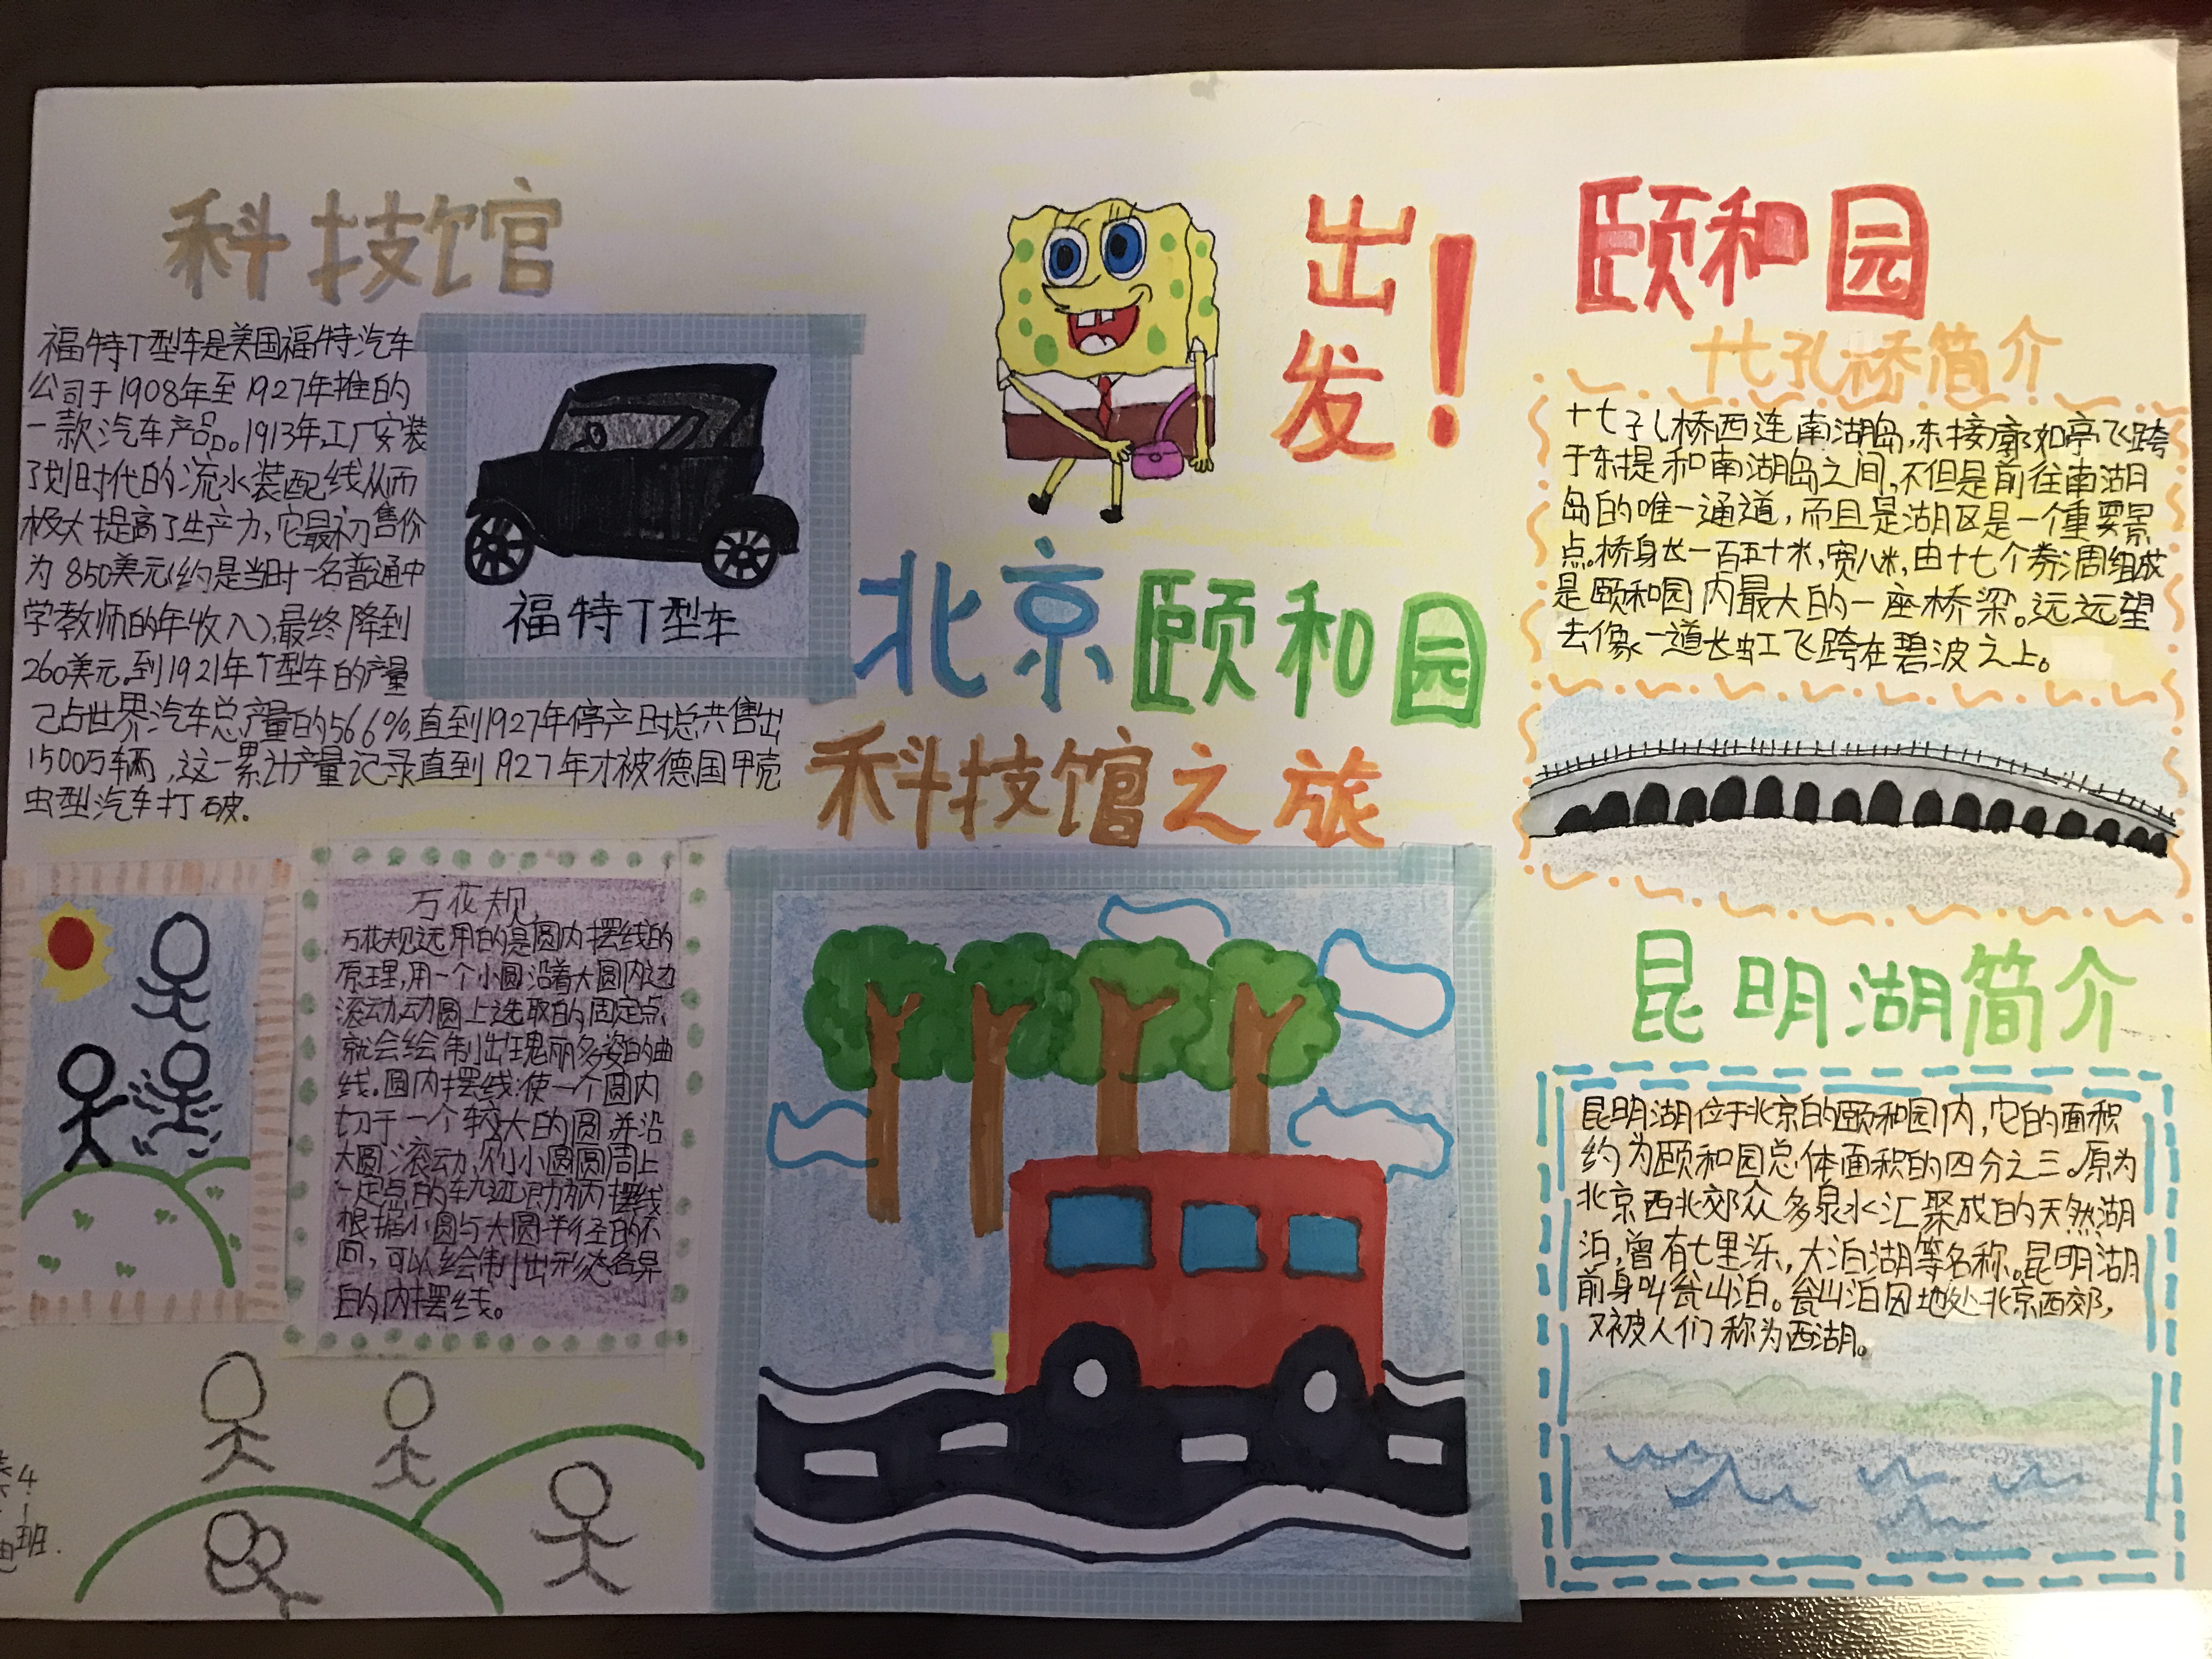 科技馆
福特T型车是美国福特汽车
公司于1908年至1927年推的
一款汽车产品。1913年,工厂安装
了划时代的流水装配线从而
极大提高了生产力,它最初售价
为850美元(约是当时一名普通中
学教师的年收入),最终降到
260美元.到1921年T型车的产量
己占世界汽车总产量的56.6%,直到1927年停产时总共售出
1500万辆,这一累计产量记录直到1927年才被德国甲壳
虫型汽车打破.
福特T型车
万花规
万花规远用的是圆内摆线的
原理,用一个小圆沿着大圆内边
滚动,动圆上选取的固定点,
就会绘制出瑰丽多姿的曲
线.圆内摆线:使一个圆内
切于一个较大的圆,并沿
大圆滚动,则小圆圆周上
一定点的轨迹即为内摆线
根据小圆与大圆半径的不
同,可以绘制出形态各异
的内摆线。
4
1
班.
出
发!
北京颐和园
科技馆之旅
颐和园
十七孔桥简介
十七孔桥西连南湖岛,东接廓如亭飞跨
于东提和南湖岛之间,不但是前往南湖
岛的唯一通道,而且是湖区是一个重要景
点.桥身长一百五十米,宽八米,由十七个券洞组成
是颐和园内最大的一座桥梁。远远望
去像一道长虹飞跨在碧波之上。
昆明湖简介
昆明湖位于北京的颐和园内,它的面积
约为颐和园总体面积的四分之三。原为
北京西北郊众多泉水汇聚成的天然湖
泊,曾有七里泺,大泊湖等名称。昆明湖
前身叫瓮山泊。瓮山泊因地处北京西郊,
又被人们称为西湖。